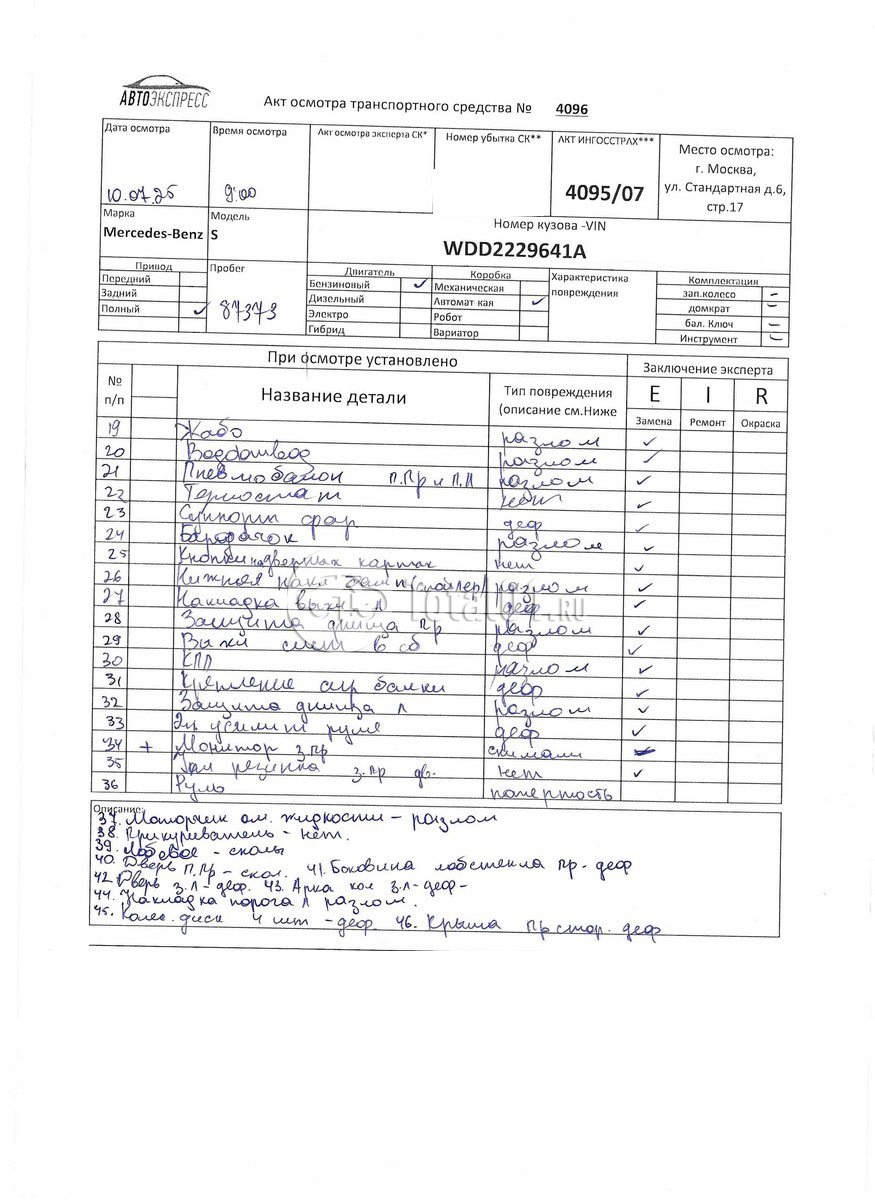 АВТОЭКСПРЕСС
Акт осмотра транспортного средства № 4096
Дата осмотра Время осмотра Акт осмотра эксперта СК* Номер убытка СК** АКТ ИНГОССТРАХ*** Место осмотра:
г. Москва,
ул. Стандартная д.6,
стр.17
10.07.25 9:00 4095/07
Марка Модель Номер кузова -VIN
Mercedes-Benz S WDD2229641A
Привод Пробег Двигатель Коробка Характеристика повреждения Комплектация
Передний Бензиновый ✓ Механическая зап.колесо –
Задний Дизельный Автомат кая ✓ домкрат –
Полный ✓ 87373 Электро Робот бал. Ключ –
Гибрид Вариатор Инструмент –
При осмотре установлено Заключение эксперта
№ п/п Название детали Тип повреждения (описание см.Ниже E I R
Замена Ремонт Окраска
19 Жабо разлом ✓
20 Водоотвод разлом ✓
21 Пневмобалон п.Пр и П.Л разлом ✓
22 Термостат ✓
23 Суппорт фар деф ✓
24 Бардачок разлом ✓
25 Кнопки на дверных картах нет ✓
26 Нижняя накл бамп (спойлер) разлом ✓
27 Накладка выхл Л деф ✓
28 Защита днища Пр разлом ✓
29 Выхл сист в сб деф ✓
30 КПП разлом ✓
31 Крепление балки деф ✓
32 Защита днища Л разлом ✓
33 Эл усилит руля деф ✓
34 + Монитор з.пр
35 резинка з.пр дв. нет ✓
36 Руль потертость
Описание:
37. Моторчик ом. жидкости – разлом
38. Прикуриватель – нет.
39. Лобовое – сколы
40. Дверь П.Пр – скол. 41. Боковина лобстекла Пр. деф
42. Дверь з.Л – деф. 43. Арка кол з.Л – деф –
44. Накладка порога Л разлом.
45. Колес. диск 4 шт – деф. 46. Крыша Пр стор. деф
TotalW.RU